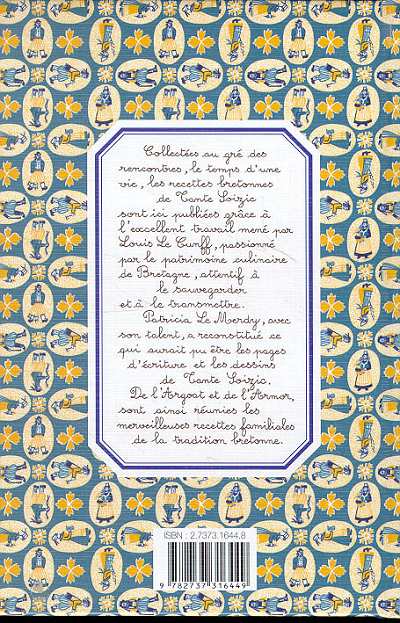 Collectées au gré des
rencontres, le temps d'une
vie, les recettes bretonnes
de Tante Soizic
sont ici publiées grâce à
l'excellent travail mené par
Louis Le Cunff, passionné
par le patrimoine culinaire
de Bretagne, attentif à
le sauvegarder
et à le transmettre.
Patricia Le Merdy, avec
son talent, a reconstitué ce
qui aurait pu être les pages
d'écriture et les dessins
de Tante Soizic.
De l'Argoat et de l'Armor,
sont ainsi réunies les
merveilleuses recettes familiales
de la tradition bretonne.
ISBN : 2.7373.1644.8
9 782737 316449